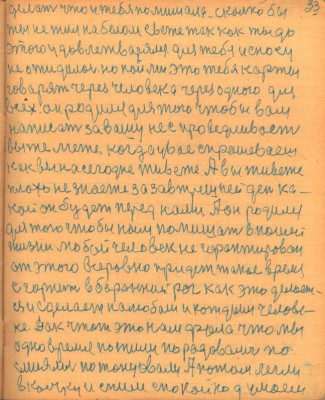 33
делат что и тебя поминала сколко бы
ты не жил на белом свете так как ты до
этого удовлетварял для тебя
но это тебя карты
говарят через человека через одного для
всех он родился для того чтобы вам
написат за вашу несправедливаст
вы же мете, когда у вас спрашеваеш
как вы на сегодне живете А вы живете
плохо не знаете за завтрешней ден ка-
кой он будет перед нами. А он родился
для того чтобы нам помещат в нашей
жизни любой человек не гарантирован
от этого всеровно придет такое время
сгорит в баранный рог как это делает-
ся и сделает на любом и каждом челове-
ке. Так что это нам дала что мы
одно время пожили порадовалис по
смеялис потонцовали А потом легли
в кочку и спим спокойно думаем